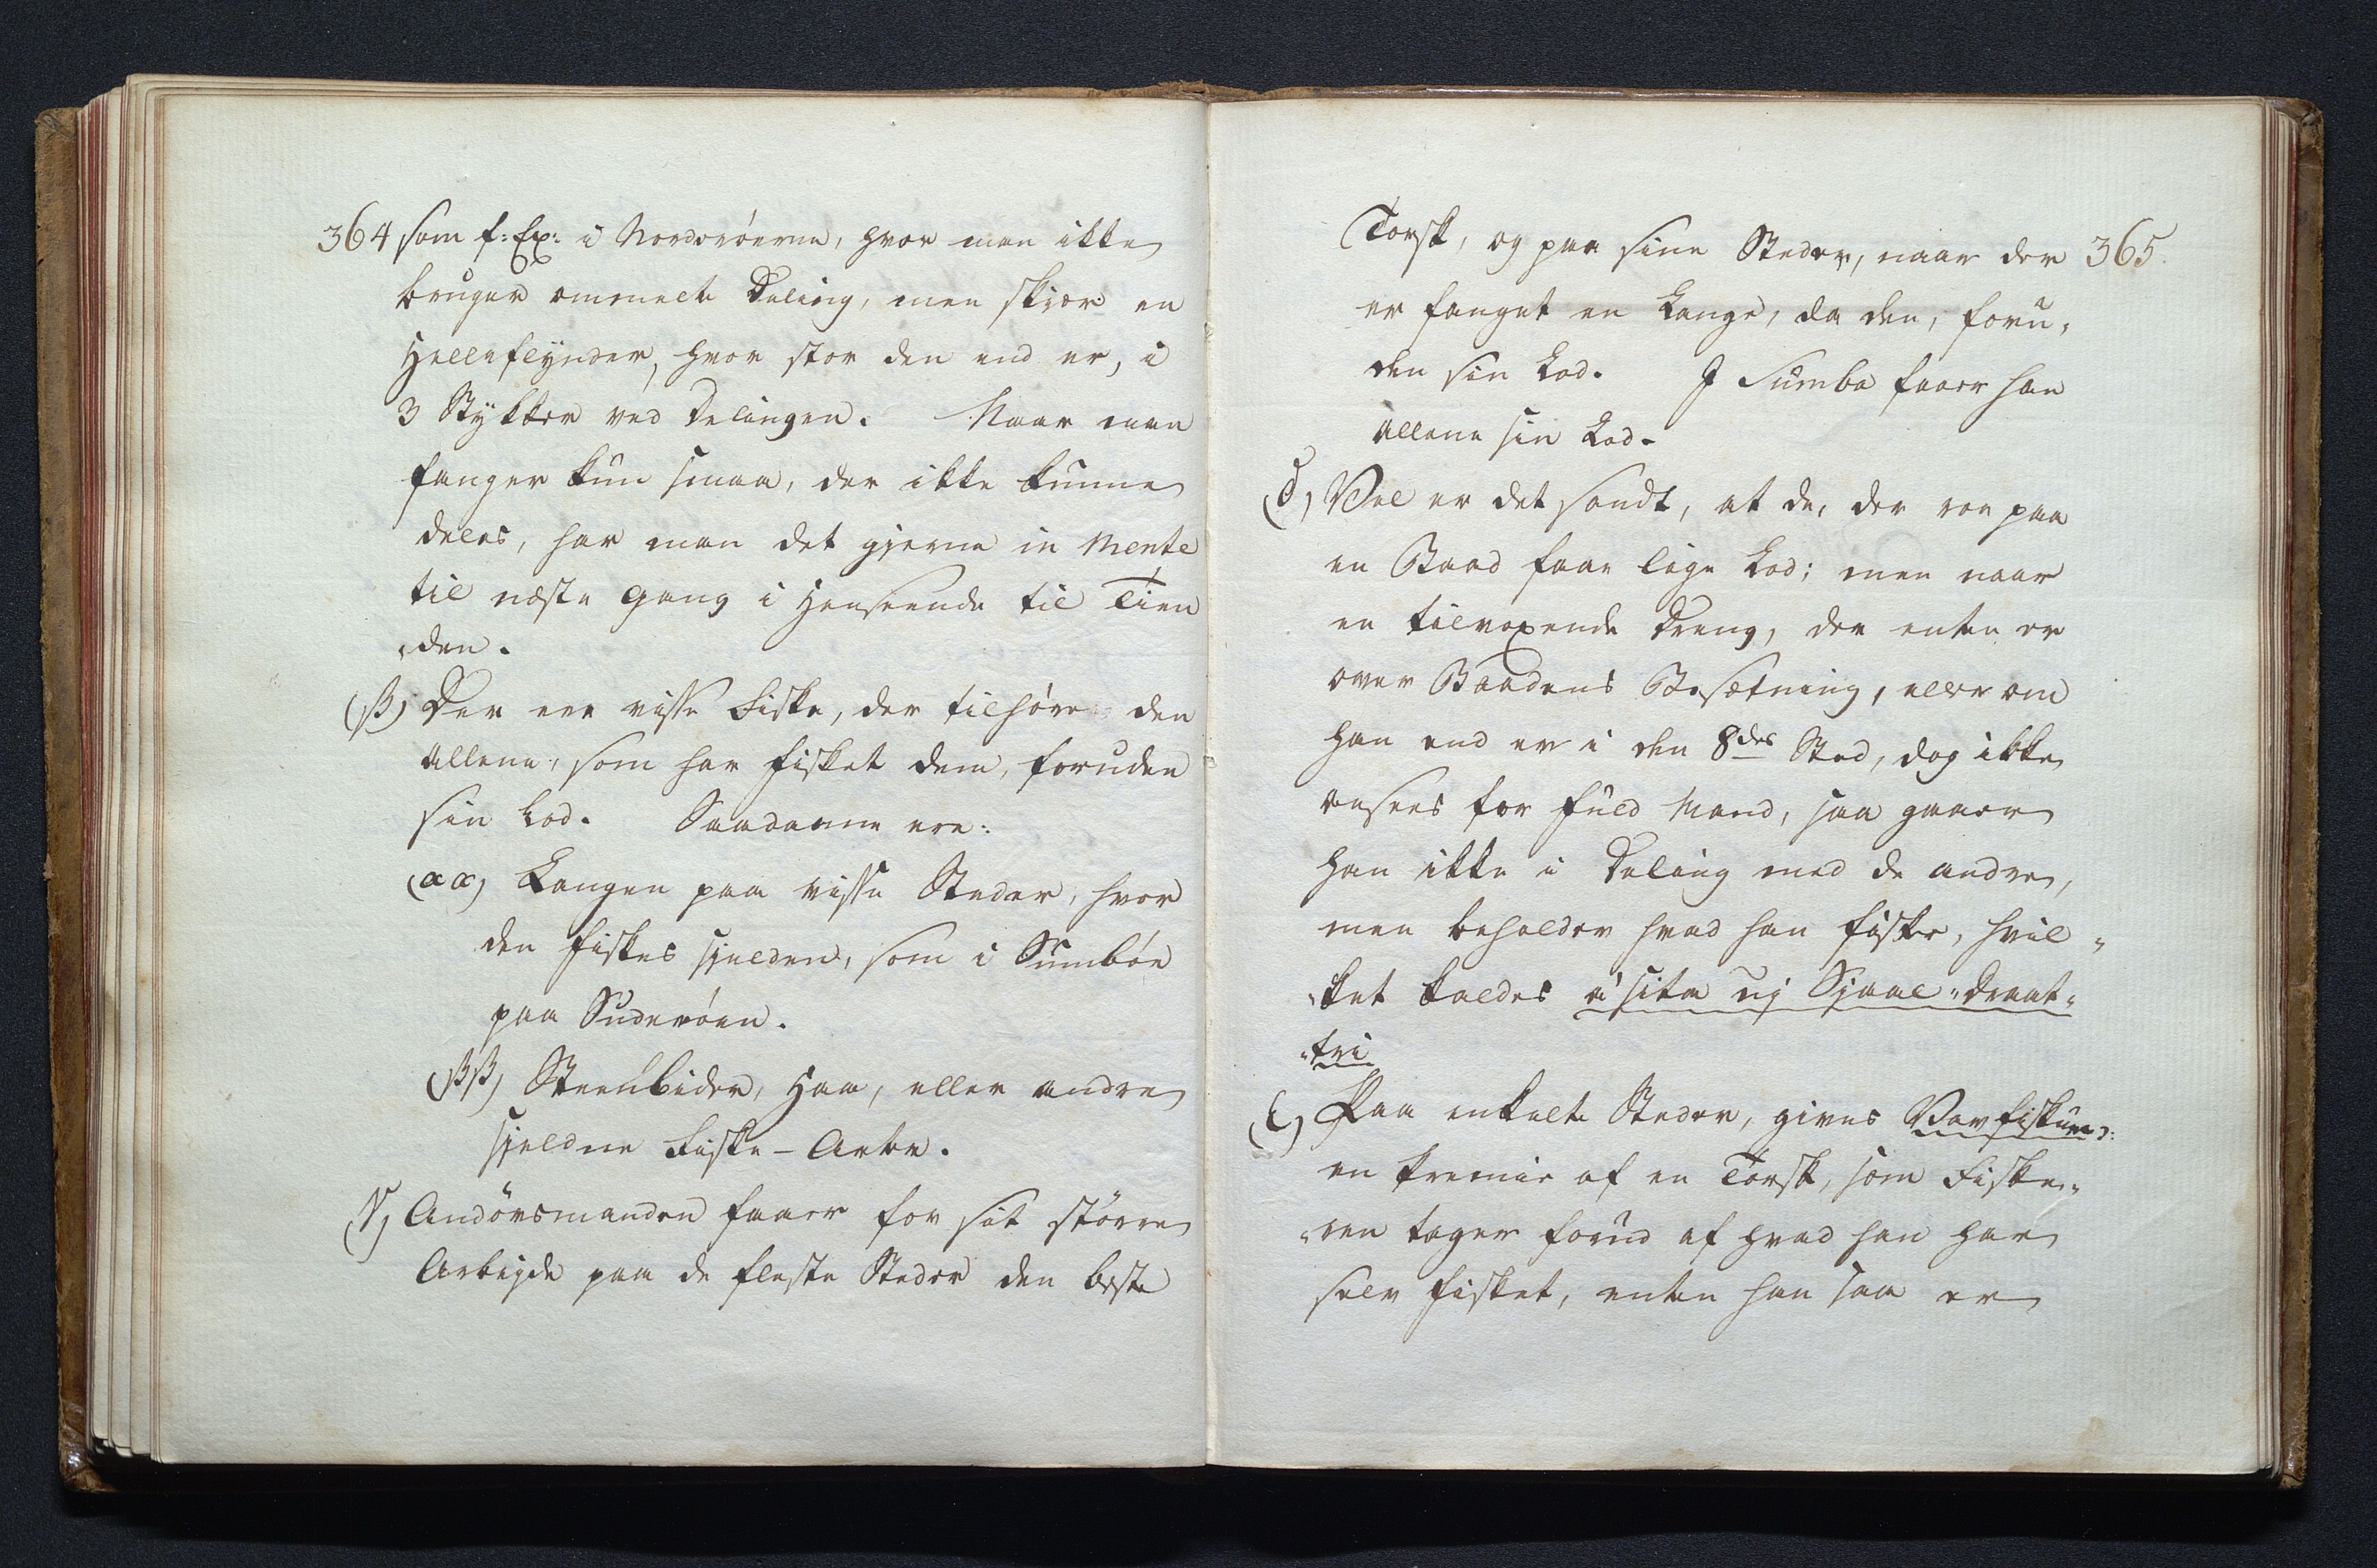 364 som f: Ex: i Norderøerne, hvor man ikke
bruger ommelte Deling, men skiær en
Helleflynder, hvor stor den end er, i
3 Stykker ved Delingen. Naar man
fanger kun smaa, der ikke kunne
deles, har man det gjerne in Mente
til næste Gang i Henseende til Tien
„den.
(β) Der ere visse Fiske, der tilhøre den
allene, som har fisket dem, foruden
sin Lod. Saadanne ere:
(αα) Langen paa visse Steder, hvor
den fiskes sjelden, som i Sumbøe
paa Suderøen.
(ββ) Steenbider, Haa, eller andre
sjeldne Fiske-Arter.
(γ) Andövsmanden faaer for sit större
Arbejde paa de fleste Steder den beste
Torsk, og paa sine Steder, naar der 365.
er fanget en Lange, da den, foru„
den sin Lod. I Sumba faaer han
allene sin Lod.
(δ) Vel er det sandt, at de, der roe paa
en Baad faae lige Lod; men naar
en tilvoxende Dreng, der enten er
over Baadens Besætning, eller om
han end er i den 8des Sted, dog ikke
ansees for fuld Mand, saa gaaer
han ikke i Deling med de andre,
men beholder hvad han fisker, hvil„
„ket kaldes á sita uj Sjaal„draat„
„tri
(ε) Paa enkelte Steder, gives Vavfiskur ɔ:
en Premie af en Torsk, som Fiske„
„ren tager forud af hvad han har
selv fisket, enten han saa er